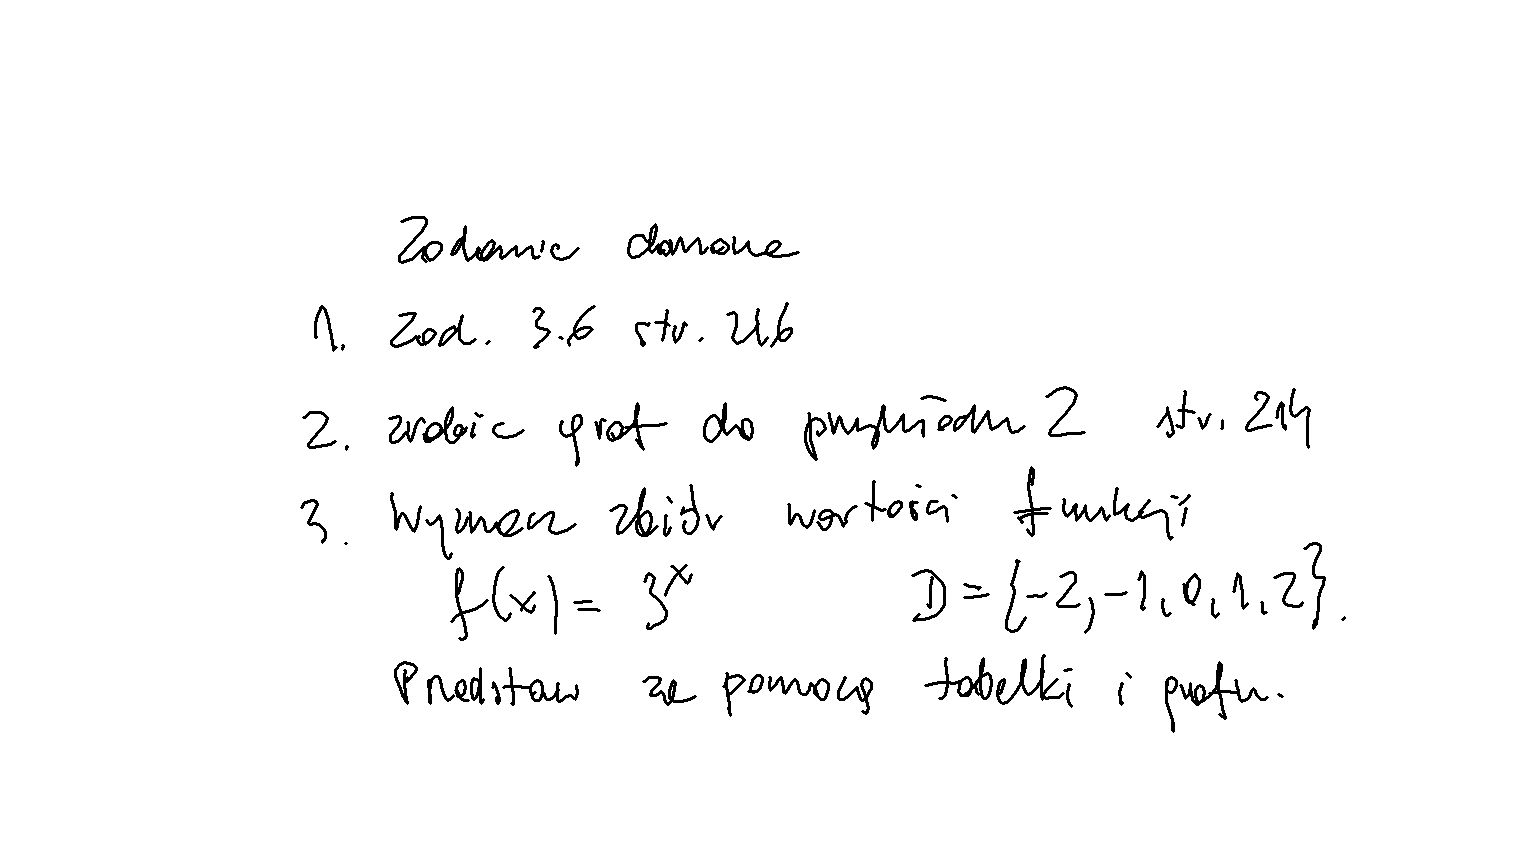 Zadanie domowe
1. Zad. 3.6 str. 216
2. zrobić graf do przykładu 2 str. 214
3. Wyznacz zbiór wartości funkcji
f(x) = 3^x D = {-2, -1, 0, 1, 2}.
Przedstaw za pomocą tabelki i grafu.